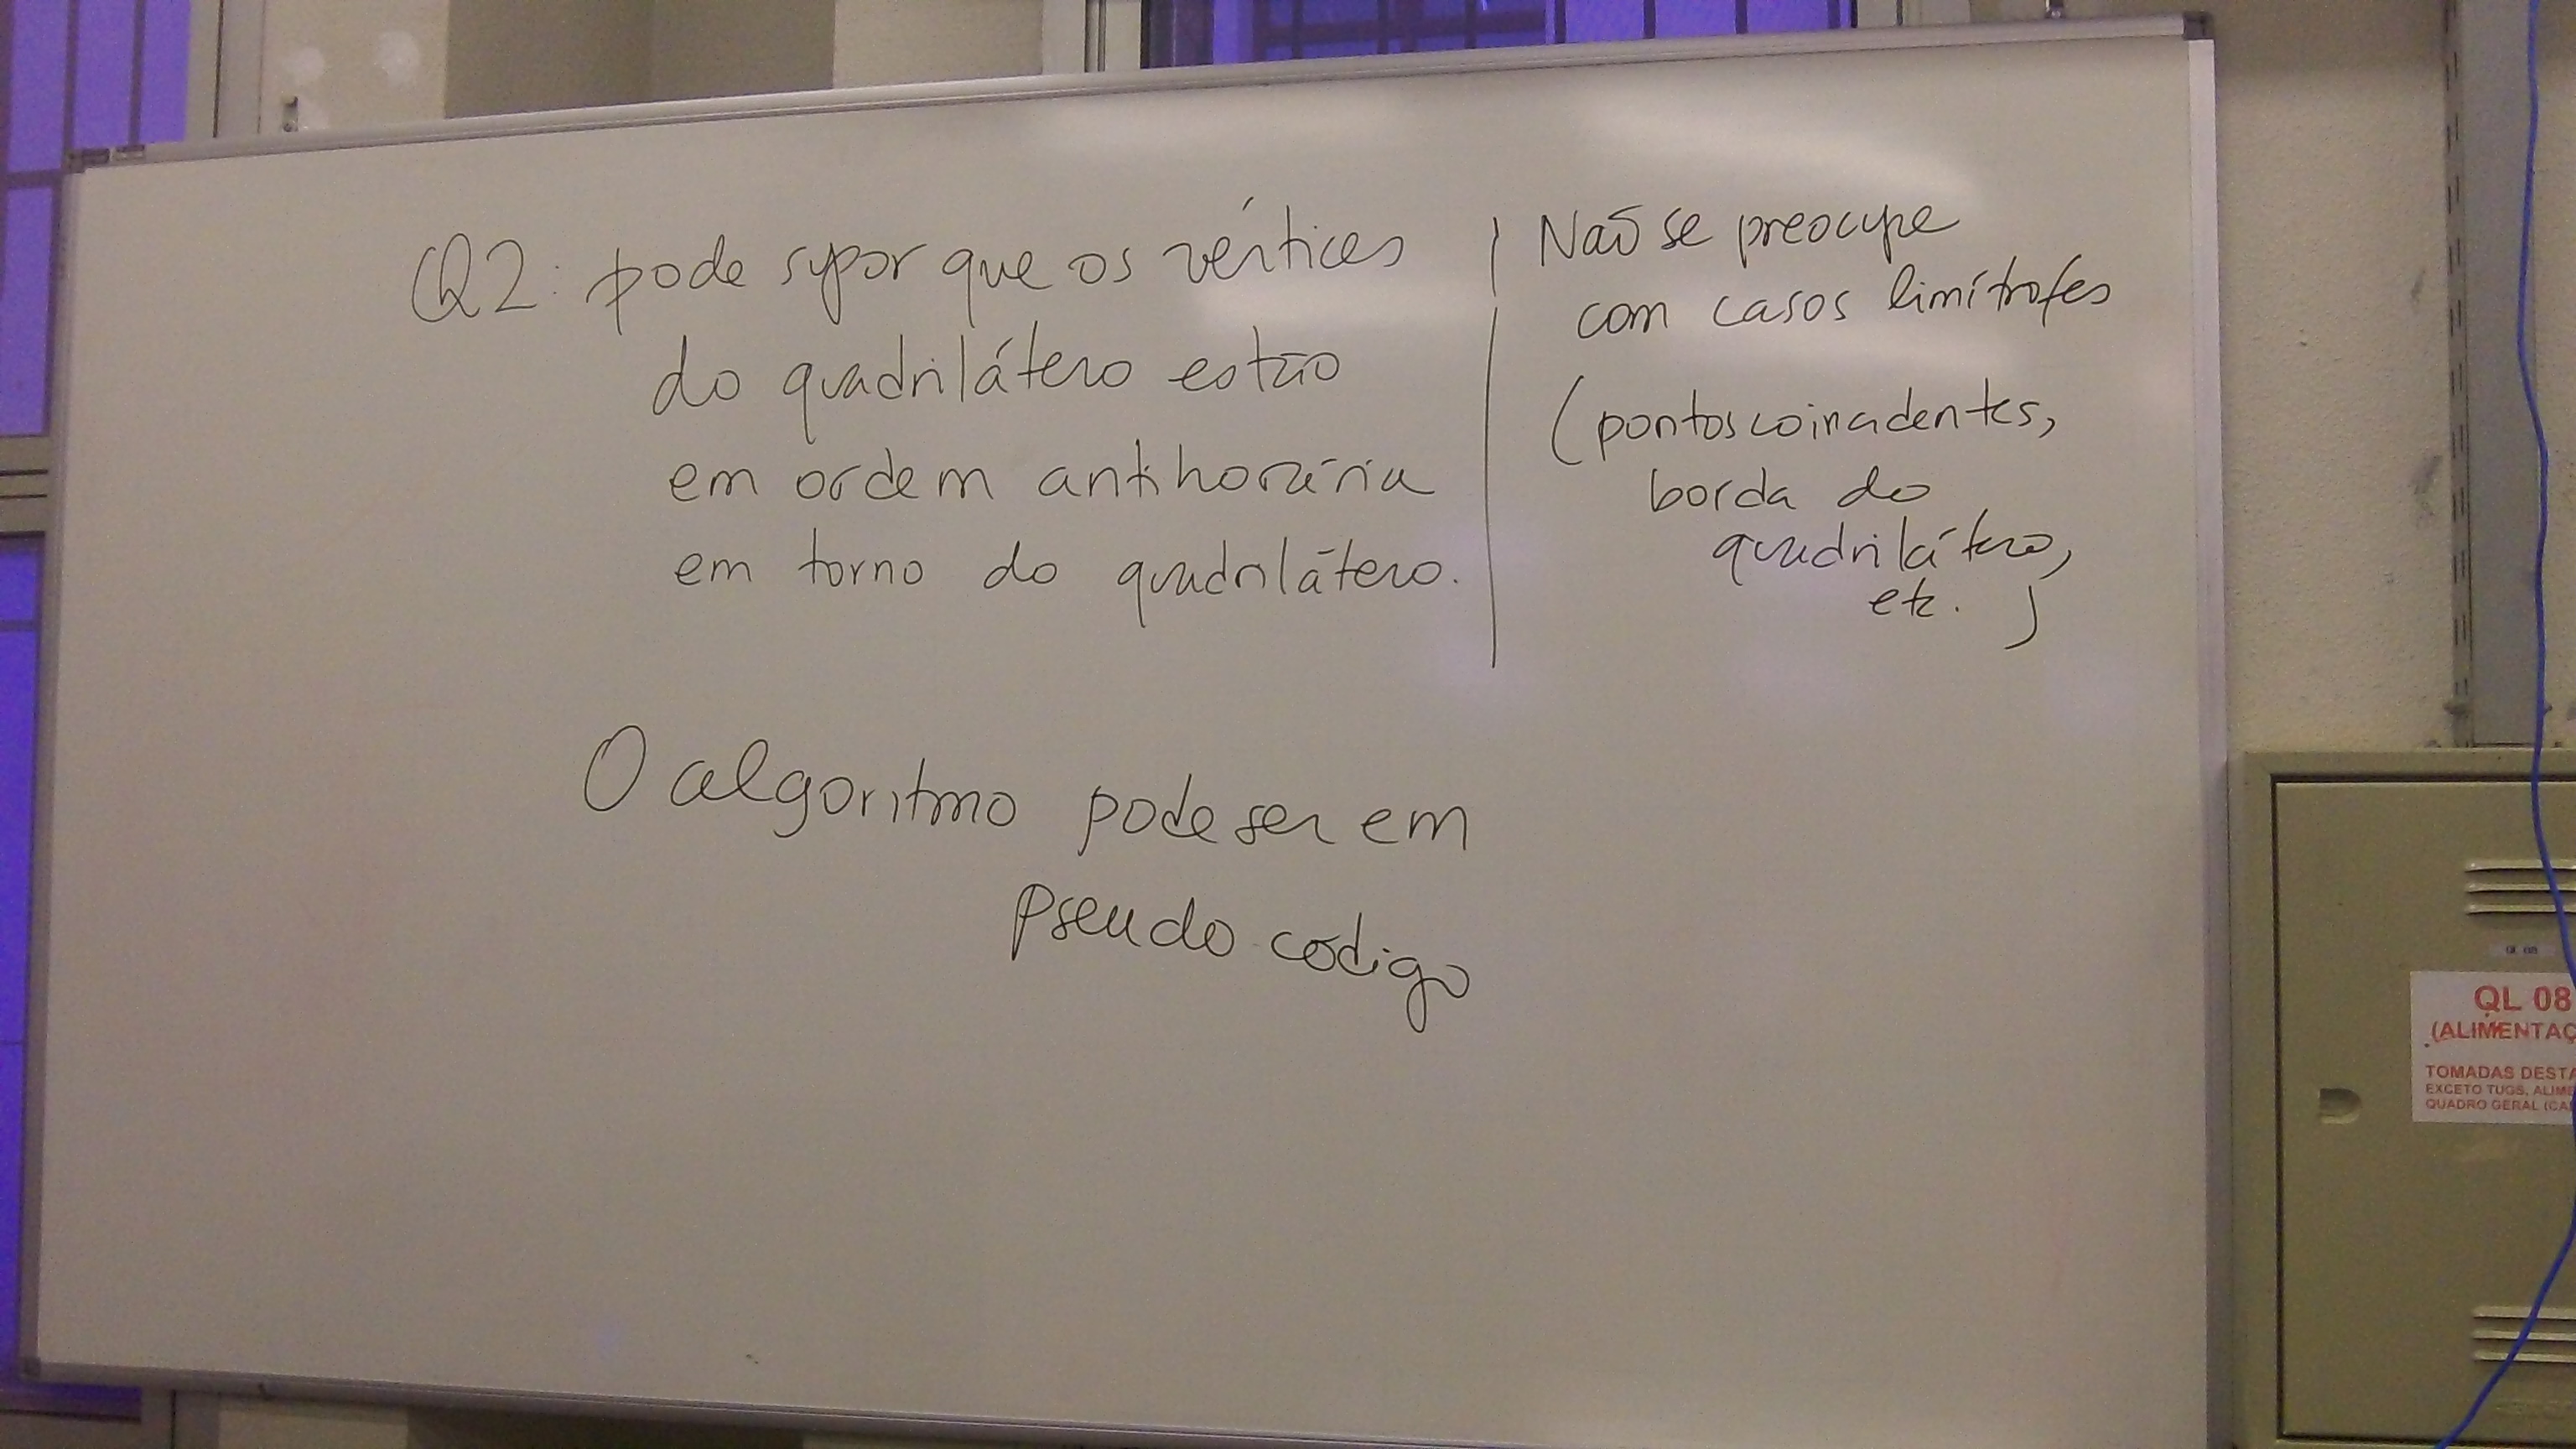 Q2: pode supor que os vértices
do quadrilátero estão
em ordem antihorária
em torno do quadrilátero.
Não se preocupe
com casos limítrofes
(pontos coincidentes,
borda do
quadrilátero,
etc. )
O algoritmo pode ser em
pseudo código
QL 08
(ALIMENTAÇ
TOMADAS DESTA
EXCETO TUGS, ALIME
QUADRO GERAL (CA